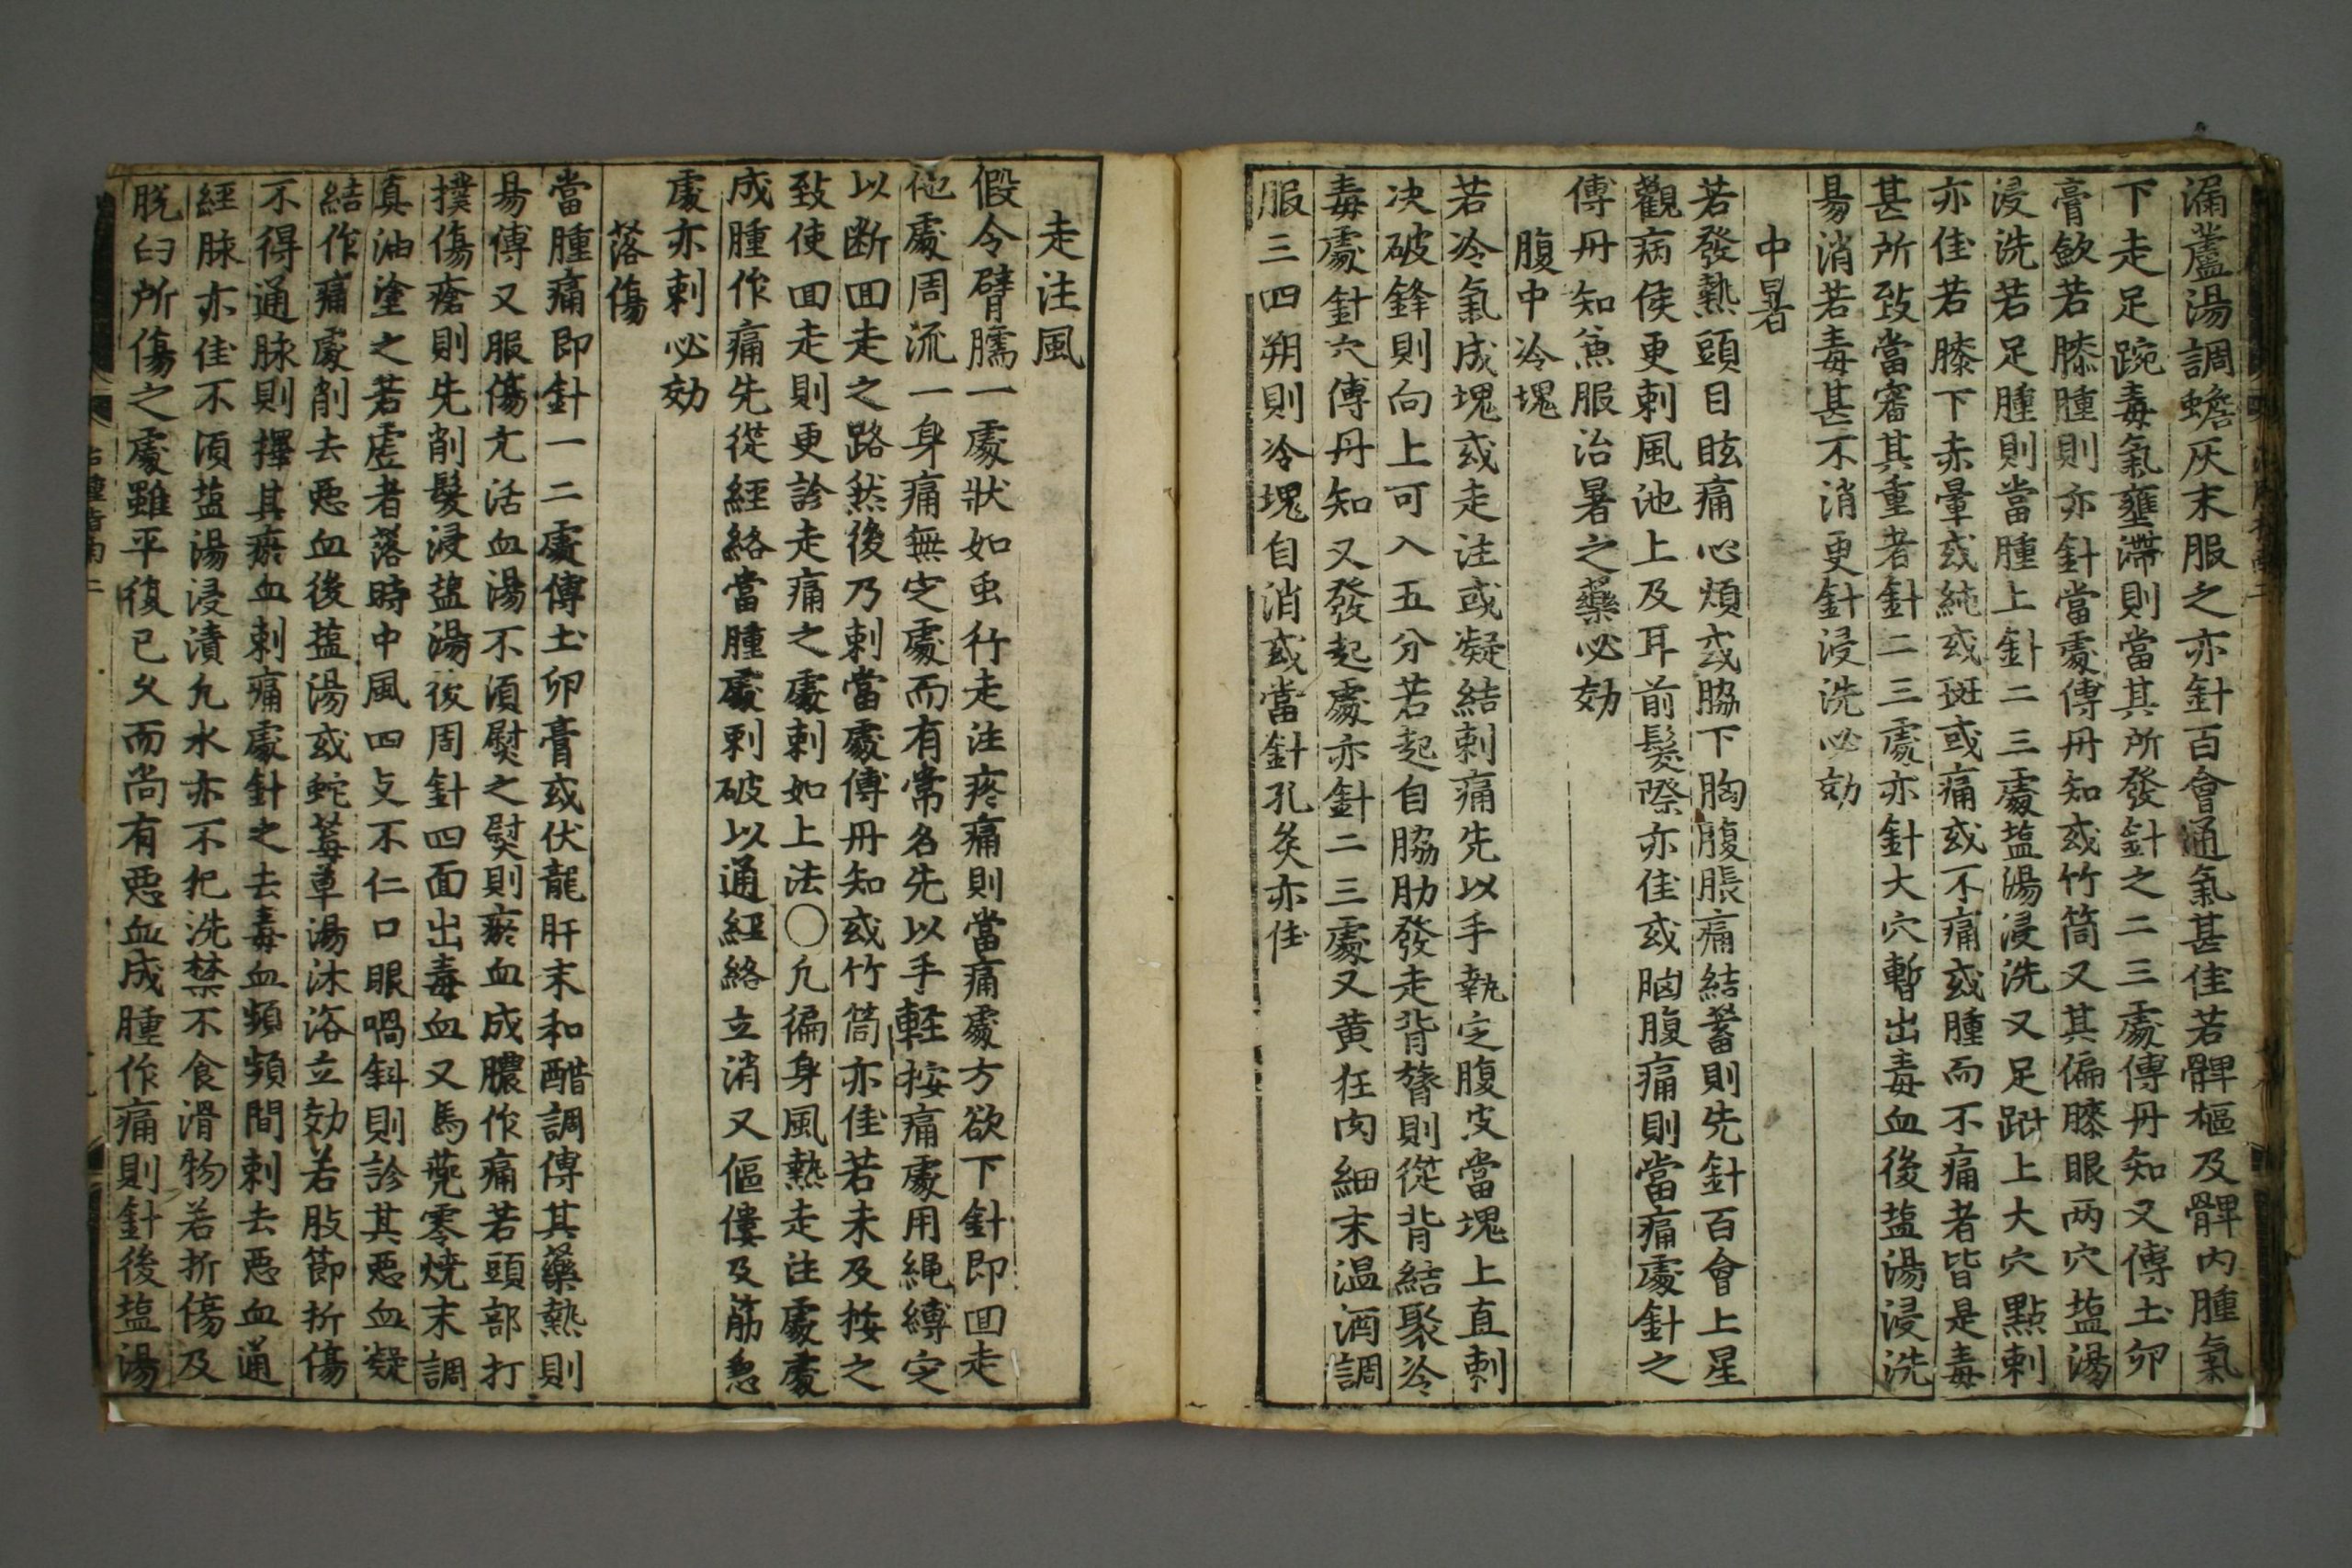 漏蘆湯調蟾灰末服之亦針百會通氣甚佳若髀樞及髀內腫氣
下走足踠毒氣壅滯則當其所發針之二三處傅丹知又傅土卵
膏斂若膝腫則亦針當處傅丹知或竹筒又其偏膝眼两穴塩湯
浸洗若足腫則當腫上針二三處塩湯浸洗又足跗上大穴點刺
亦佳若膝下赤暈或純或斑或痛或不痛或腫而不痛者皆是毒
甚所致當審其重者針二三處亦針大穴暫出毒血後塩湯浸洗
易消若毒甚不消更針浸洗必効
中暑
若發熱頭目眩痛心煩或脇下胸腹脹痛結蓄則先針百會上星
觀病候更刺風池上及耳前髮際亦佳或胸腹痛則當痛處針之
傅丹知兼服治暑之藥必効
腹中冷塊
若冷氣成塊或走注或凝結刺痛先以手執定腹皮當塊上直刺
决破鋒則向上可入五分若起自脇肋發走背膂則從背結聚冷
毒處針穴傅丹知又發起處亦針二三處又黄狂肉細末温酒調
服三四朔則冷塊自消或當針孔灸亦佳
走注風
假令臂臑一處狀如虫行走注疼痛則當痛處方欲下針即回走
他處周流一身痛無定處而有常名先以手軽按痛處用縄縛定
以断回走之路然後乃刺當處傅丹知或竹筒亦佳若未及按之
致使回走則更診走痛之處刺如上法〇凢徧身風熱走注處處
成腫作痛先從経絡當腫處刺破以通経絡立消又傴僂及筋急
處亦刺必効
落傷
當腫痛即針一二處傅土卵膏或伏龍肝末和醋調傅其藥熱則
易傅又服傷元活血湯不須熨之熨則瘀血成膿作痛若頭部打
撲傷瘡則先削髮浸塩湯後周針四面出毒血又馬蔸零燒末調
真油塗之若虛者落時中風四支不仁口眼喎斜則診其惡血凝
結作痛處削去惡血後塩湯或蛇莓草湯沐浴立効若肢節折傷
不得通脉則擇其瘀血刺痛處針之去毒血頻頻間刺去惡血通
経脉亦佳不須塩湯浸漬凢水亦不犯洗禁不食滑物若折傷及
脱臼所傷之處雖平復已久而尚有惡血成腫作痛則針後塩湯